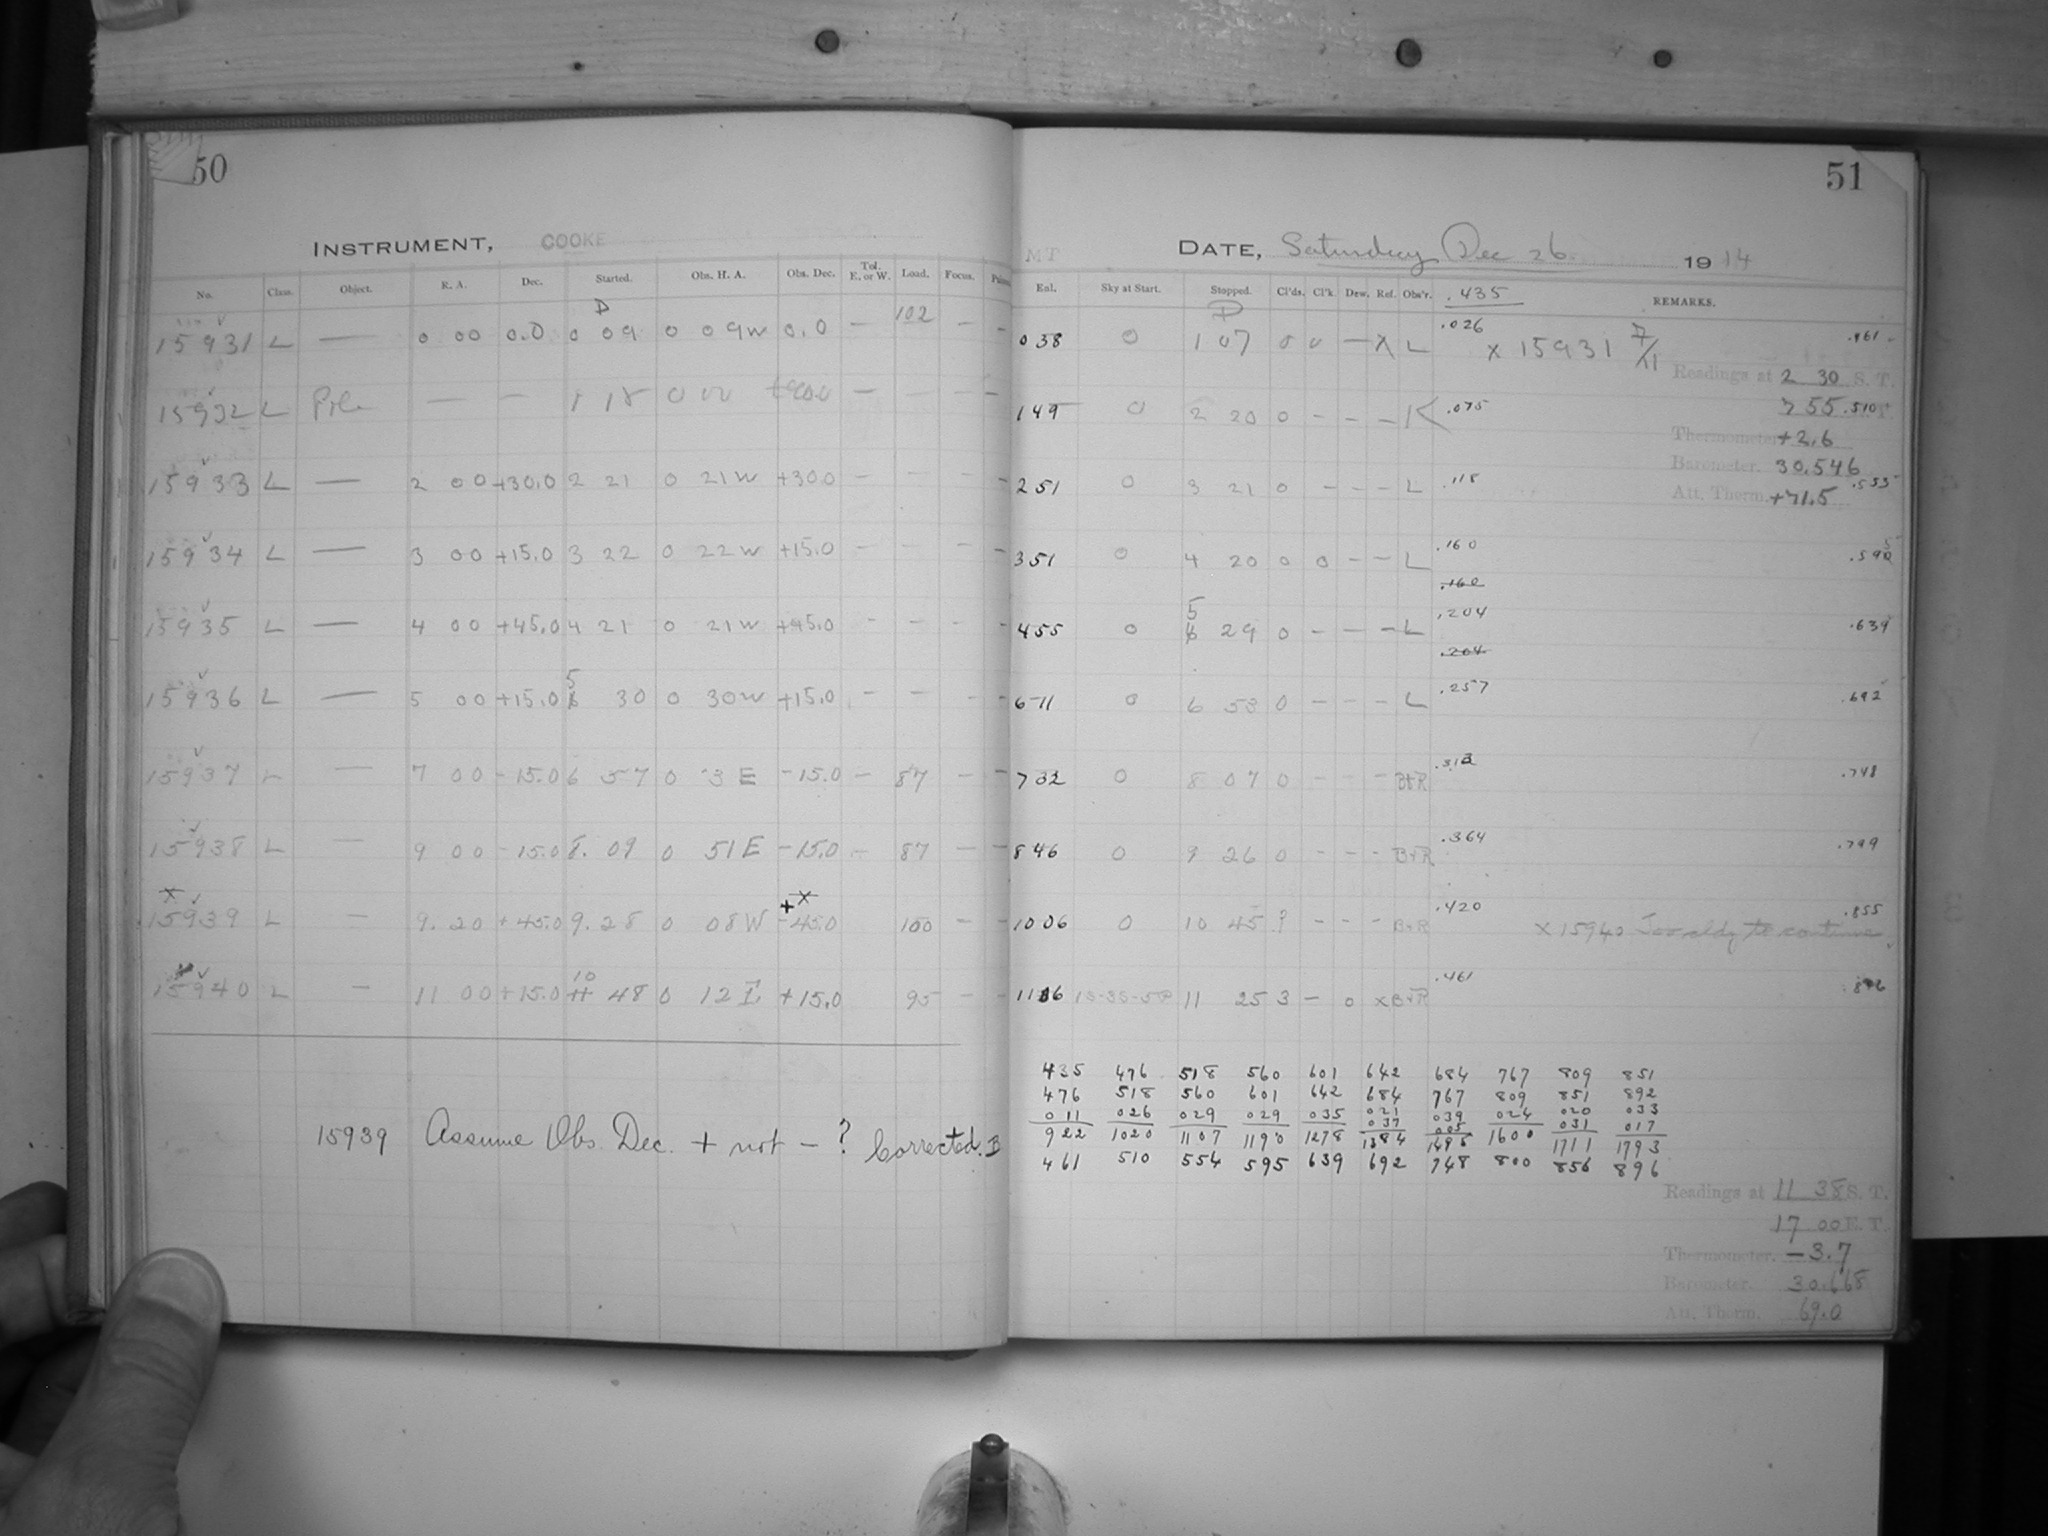 50
INSTRUMENT, COOKE
No. Class. Object. R. A. Dec. Started. Obs. H. A. Obs. Dec. Tel. E. or W. Load. Focus.
15931 L — 0 00 0.0 0 09 0 09W 0.0 — 102 — —
15932 L Pole — — 1 18 — — —
15933 L — 2 00 +30.0 2 21 0 21W +30.0 — — — —
15934 L — 3 00 +15.0 3 22 0 22W +15.0 — — — —
15935 L — 4 00 +45.0 4 21 0 21W +45.0 — — — —
15936 L — 5 00 +15.0 5 30 0 30W +15.0 — — — —
15937 L — 7 00 -15.0 6 57 0 3E -15.0 — 87 — —
15938 L — 9 00 -15.0 8. 09 0 51E -15.0 — 87 — —
15939 L — 9. 20 +45.0 9. 28 0 08W +45.0 100 — —
15940 L — 11 00 +15.0 10 48 0 12E +15.0 95 — —
15939 Assume Obs. Dec. + not - ? Corrected. B
51
MT DATE, Saturday Dec 26. 1914
Exl. Sky at Start. Stopped. Cl'ds. Cl'k. Dew. Ref. Obs'r. .435 REMARKS.
0 38 0 1 07 0 0 — X L .026 X 15931 .461
Readings at 2 30 S. T.
1 49 0 2 20 0 - - - K .075 7 55 .510
Thermometer +2.6
Barometer. 30.546
2 51 0 3 21 0 - - - L .118 Att. Therm. +71.5 .553
3 51 0 4 20 0 0 - - L .160 .595
.160
4 55 0 5 29 0 - - - L .204 .639
.204
6 11 0 6 53 0 - - - L .257 .692
7 32 0 8 07 0 - - - B+R .313 .748
8 46 0 9 26 0 - - - B+R .364 .799
10 06 0 10 45 ? - - - B+R .420 X 15940 Too cldy to continue .855
11 06 11 25 3 - 0 X B+R .461 .896
435 476 518 560 601 642 684 767 809 851
476 518 560 601 642 684 767 809 851 892
011 026 029 029 035 021 039 024 020 033
037 005 031 017
922 1020 1107 1190 1278 1384 1495 1600 1711 1793
461 510 554 595 639 692 748 800 856 896
Readings at 11 38 S. T.
17 00 E. T.
Thermometer. -3.7
Barometer. 30.668
Att. Therm. 69.0